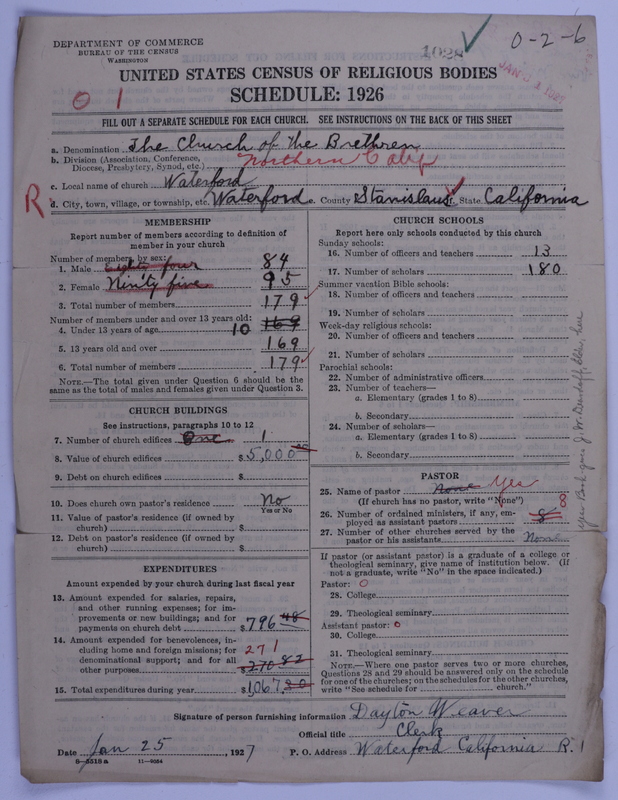 DEPARTMENT OF COMMERCE
BUREAU OF THE CENSUS
WASHINGTON
0-2-6
UNITED STATES CENSUS OF RELIGIOUS BODIES
SCHEDULE: 1926
0 1
FILL OUT A SEPARATE SCHEDULE FOR EACH CHURCH. SEE INSTRUCTIONS ON THE BACK OF THIS SHEET
a. Denomination The Church of the Brethren
b. Division (Association, Conference, Diocese, Presbytery, Synod, etc.) Northern Calif
c. Local name of church Waterford
R
d. City, town, village, or township, etc. Waterford e. County Stanislaus f. State California
MEMBERSHIP
Report number of members according to definition of
member in your church
Number of members, by sex:
1. Male Eighty four 84
2. Female Ninity five 95
3. Total number of members 179
Number of members under and over 13 years old:
4. Under 13 years of age 10 169
5. 13 years old and over 169
6. Total number of members 179
NOTE.—The total given under Question 6 should be the
same as the total of males and females given under Question 3.
CHURCH BUILDINGS
See instructions, paragraphs 10 to 12
7. Number of church edifices One 1
8. Value of church edifices $5,000 00
9. Debt on church edifices $
10. Does church own pastor's residence No
Yes or No
11. Value of pastor's residence (if owned by
church) $
12. Debt on pastor's residence (if owned by
church) $
EXPENDITURES
Amount expended by your church during last fiscal year
13. Amount expended for salaries, repairs,
and other running expenses; for im-
provements or new buildings; and for
payments on church debt $796 48
14. Amount expended for benevolences, in-
cluding home and foreign missions; for
denominational support; and for all
other purposes 271 270 82
15. Total expenditures during year $1,067.30
CHURCH SCHOOLS
Report here only schools conducted by this church
Sunday schools:
16. Number of officers and teachers 13
17. Number of scholars 180
Summer vacation Bible schools:
18. Number of officers and teachers
19. Number of scholars
Week-day religious schools:
20. Number of officers and teachers
21. Number of scholars
Parochial schools:
22. Number of administrative officers
23. Number of teachers—
a. Elementary (grades 1 to 8)
b. Secondary
24. Number of scholars—
a. Elementary (grades 1 to 8)
b. Secondary
PASTOR
25. Name of pastor None Yes
(If church has no pastor, write "None")
26. Number of ordained ministers, if any, em-
ployed as assistant pastors 8 8
27. Number of other churches served by the
pastor or his assistants None
If pastor (or assistant pastor) is a graduate of a college or
theological seminary, give name of institution below. (If
not a graduate, write "No" in the space indicated.)
Pastor: 0
28. College
29. Theological seminary
Assistant pastor: 0
30. College
31. Theological seminary
NOTE.—Where one pastor serves two or more churches,
Questions 28 and 29 should be answered only on the schedule
for one of the churches; on the schedules for the other churches,
write "See schedule for church."
Year Book gives J. W.
Signature of person furnishing information Dayton Weaver
Official title Clerk
Date Jan 25, 1927 P. O. Address Waterford California R. 1
8-5518a 11-9264